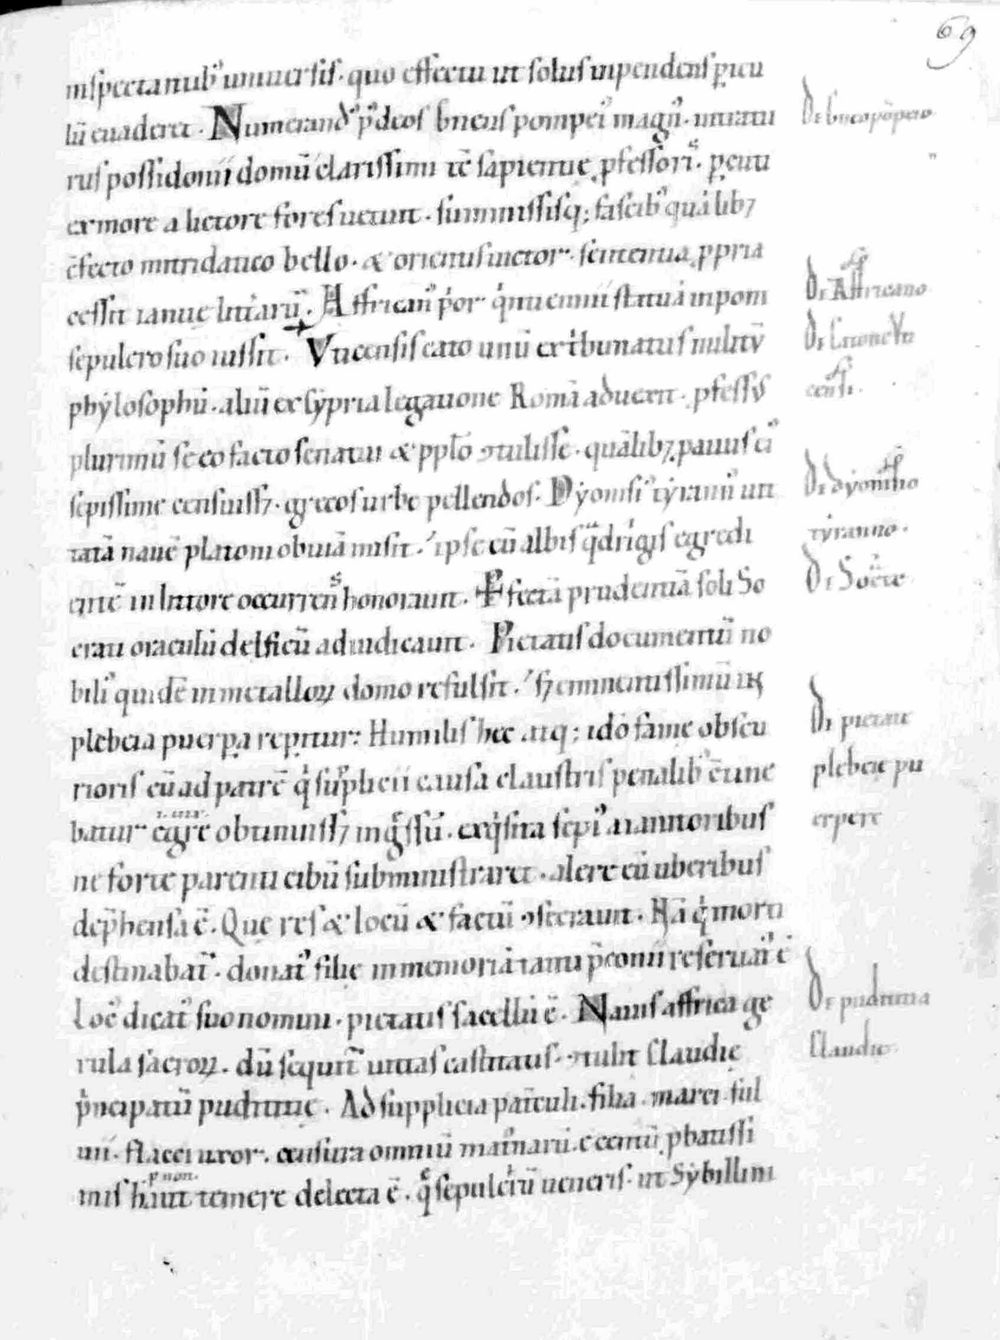 69
inspectantib' uniuersis. quo effectu ut solus inpendens picu
lū euaderet. Numerand' p'deos Gneus pompei' magn'. intratu
rus possidonii domū clarissimi tē sapientię pfessoris. pcuti
ex more a lictore fores uetuit. summissisq; fascib' quālibꝫ
ēfecto mitridatico bello. & orientis uictor. sententia ppria
cessit ianuę litt̄arū. Affrican' pior q'nti ennii statuā inponi
sepulcro suo iussit. Vticensis cato unū ex tribunatus militū
phylosophū. aliū ex sypria legatione Romā aduexit. pfessus
plurimū se eo facto senatui & pplo ꝯtulisse. quālibꝫ pauus ei'
sepissime censuissꝫ. grecos urbe pellendos. Dyonisi' tyrann' uit
tatā nauē platoni obuiā misit. ipse cū albis qᵃdrigis egredi
entē in littore occurrens honorauit. Pfectā prudentiā soli So
crati oraculū delficū adiudicauit. Pietatis documentū no
bili' quidē in metalloꝝ domo refulsit. sꝫ eminentissimū int
plebeia puerpa repitur: Humilis hec atq; ido fame obscu
rioris cū ad patrē q' supplicii causa claustris penalib' ētine
batur egre obtinuissꝫ ingssū. exq'sita sepi' a ianitoribus
ne forte parenti cibū subministraret. alere eū uberibus
dep̄hensa ē. Quę res & locū & factū ꝯsecrauit. Nā q' morti
destinabat'. donat' filię in memoriā tanti p̄conii reseruat' ē
Loc' dicat' suo nomini. pietatis sacellū ē. Nauis affrica ge
rula sacroꝝ. dū sequit' uittas castitatis. ꝯtulit Claudię
p'ncipatū pudicitię. Ad supplicia pat'culi. filia. marci. ful
uii. flacci uxor. censura omniū mat'narū. e centū pbatissi
mis haut temere delecta ē. q̄ sepulcrū ueneris. ut Sybillini
p non
De Gneo pōpeio
De Affricano
De Catone Vti
censi.
De dyonisio
tyranno.
De Socrate
De pietate
plebeie pu
erpere
De pudicitia
Claudie